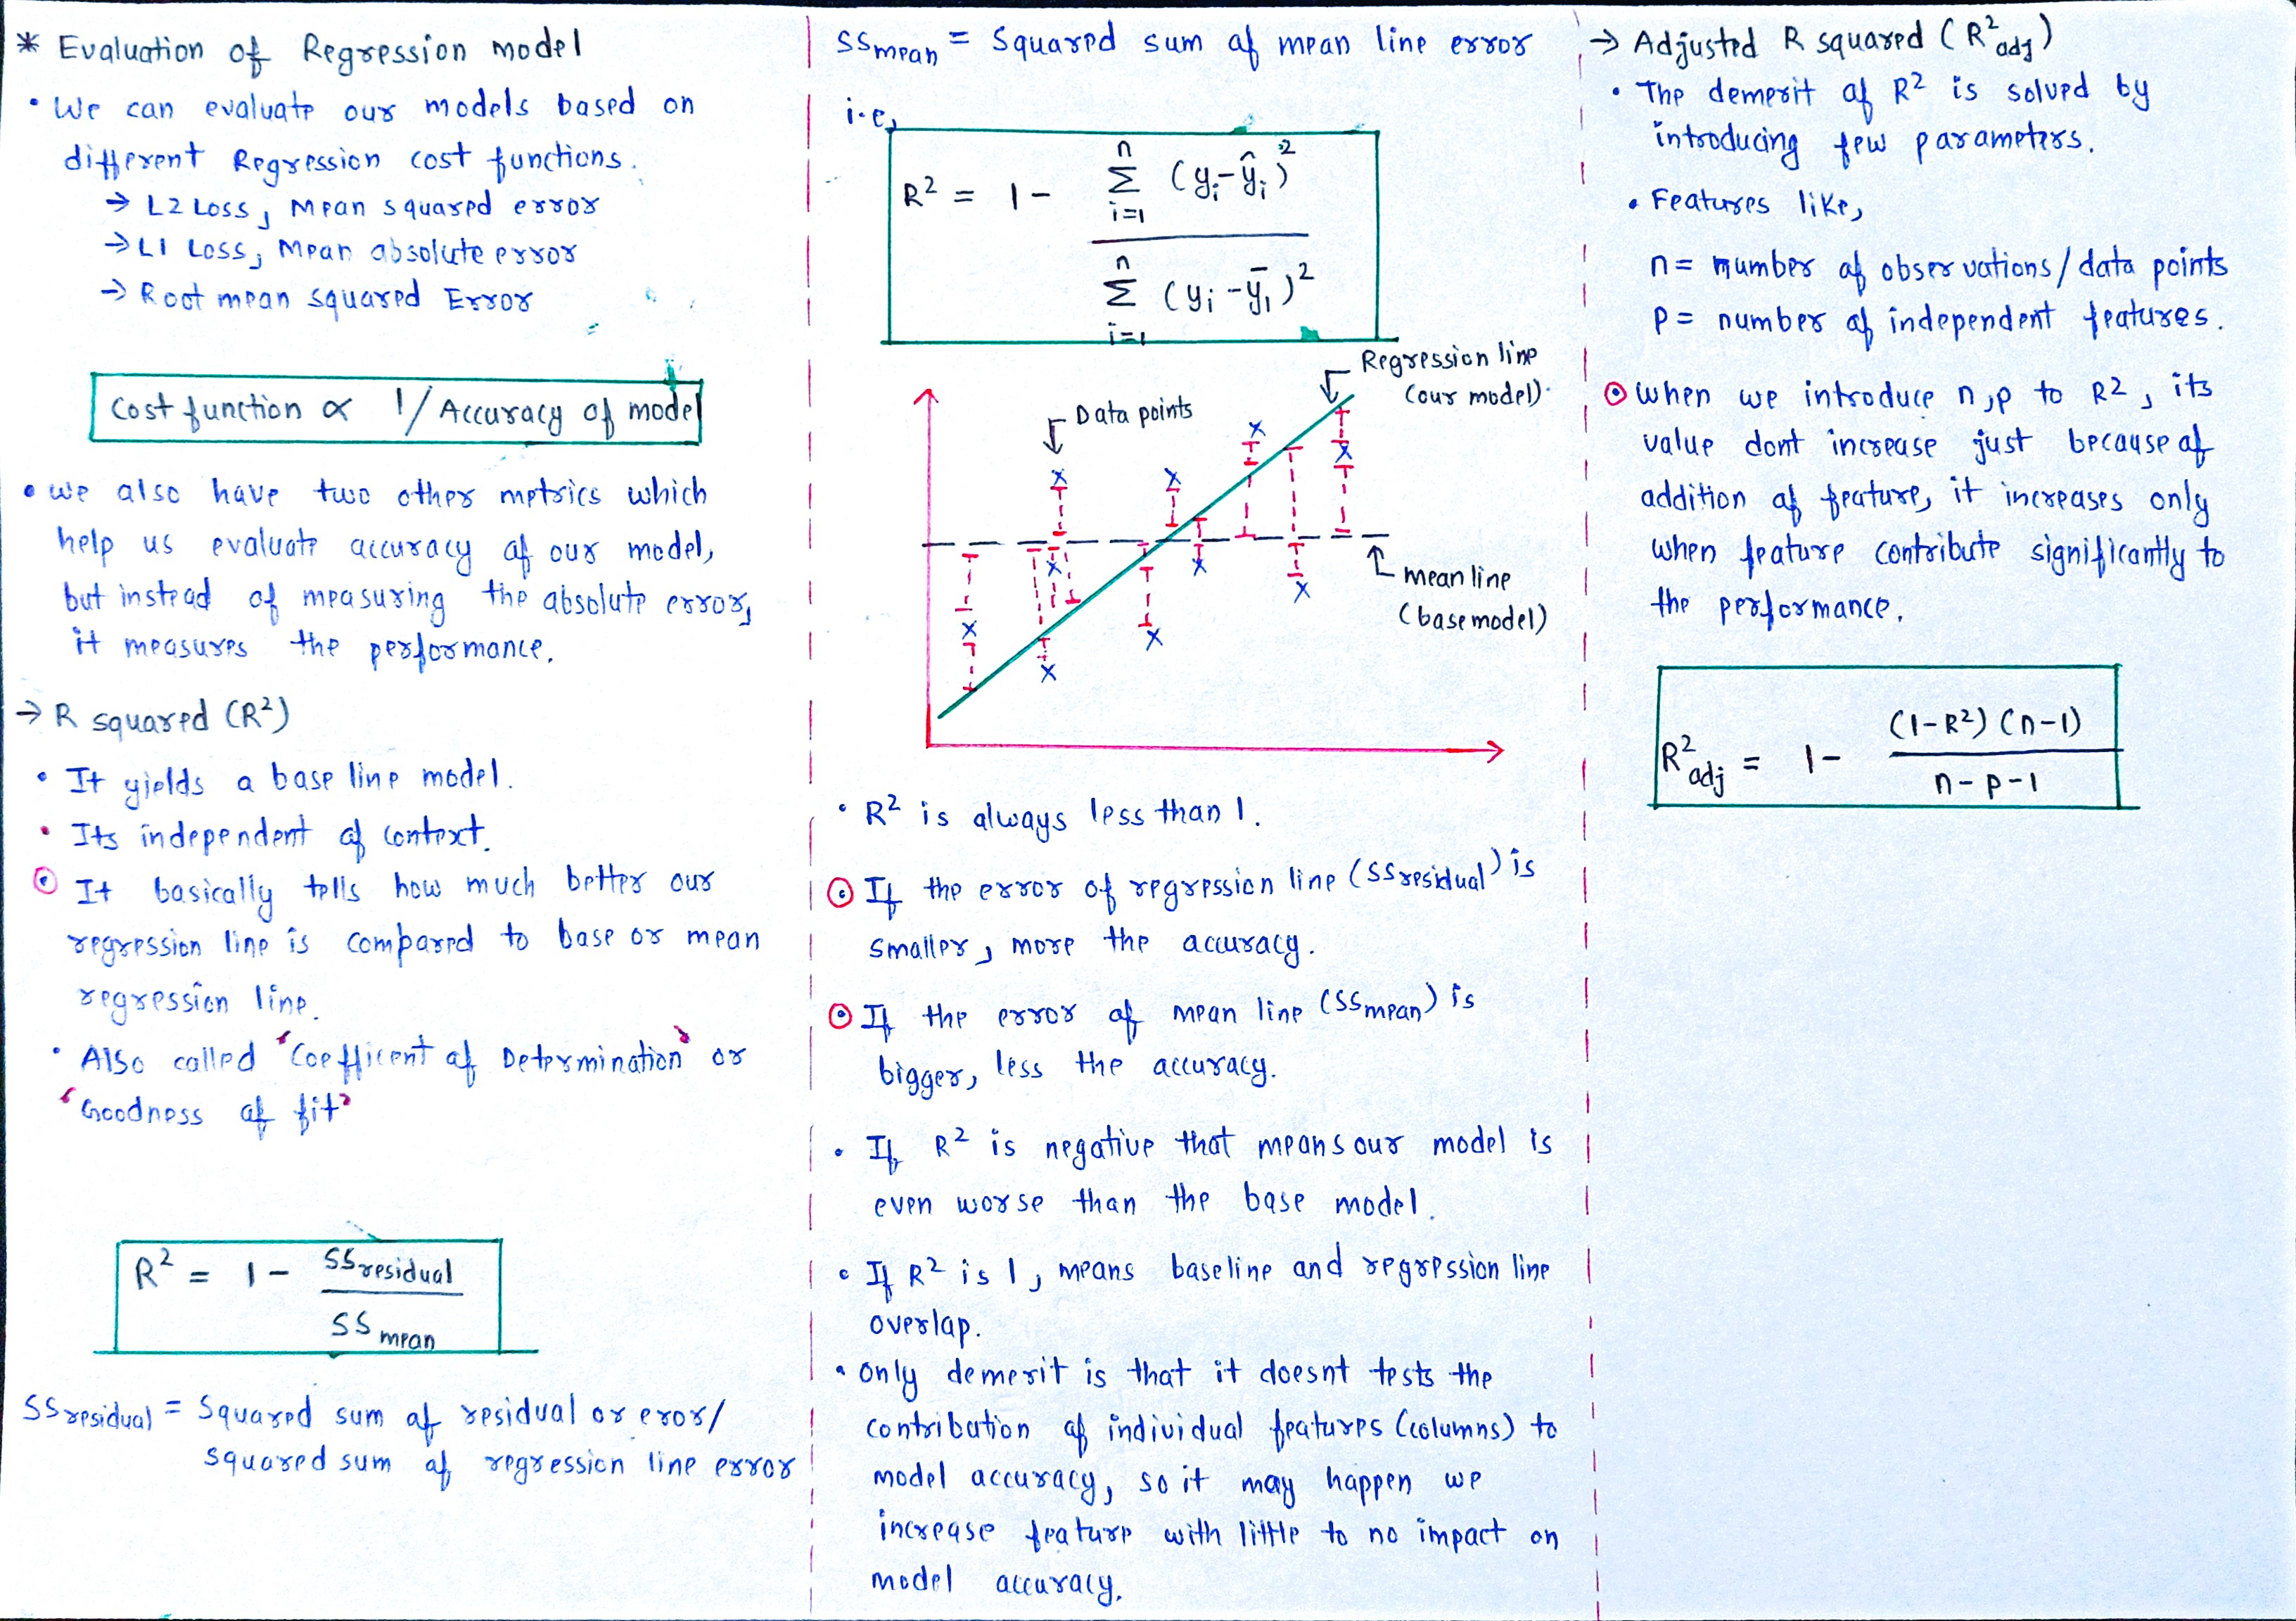 * Evaluation of Regression model
• We can evaluate our models based on
different Regression cost functions.
→ L2 Loss, Mean squared error
→ L1 Loss, Mean absolute error
→ Root mean squared Error
Cost function ∝ 1/Accuracy of model
• we also have two other metrics which
help us evaluate accuracy of our model,
but instead of measuring the absolute error,
it measures the performance.
→ R squared (R²)
• It yields a base line model.
• Its independent of context.
⊙ It basically tells how much better our
regression line is compared to base or mean
regression line.
• Also called 'Coefficent of Determination' or
'Goodness of fit'
R² = 1 - SSresidual / SSmean
SSresidual = Squared sum of residual or eror/
squared sum of regression line error
SSmean = Squared sum of mean line error
i.e,
R² = 1 - Σ_{i=1}^{n} (yᵢ-ŷᵢ)² / Σ_{i=1}^{n} (yᵢ-ȳ₁)²
Regression line
(our model).
Data points
mean line
(base model)
• R² is always less than 1.
⊙ If the error of regression line (SSresidual) is
smaller, more the accuracy.
⊙ If the error of mean line (SSmean) is
bigger, less the accuracy.
• If R² is negative that means our model is
even worse than the base model.
• If R² is 1, means baseline and regression line
overlap.
• only demerit is that it doesnt tests the
contribution of individual features (columns) to
model accuracy, so it may happen we
increase feature with little to no impact on
model accuracy.
→ Adjusted R squared (R²adj)
• The demerit of R² is solved by
introducing few parameters.
• Features like,
n = number of observations/data points
p = number of independent features.
⊙ when we introduce n,p to R², its
value dont increase just because of
addition of feature, it increases only
when feature contribute significantly to
the performance.
R²adj = 1 - (1-R²) (n-1) / n-p-1